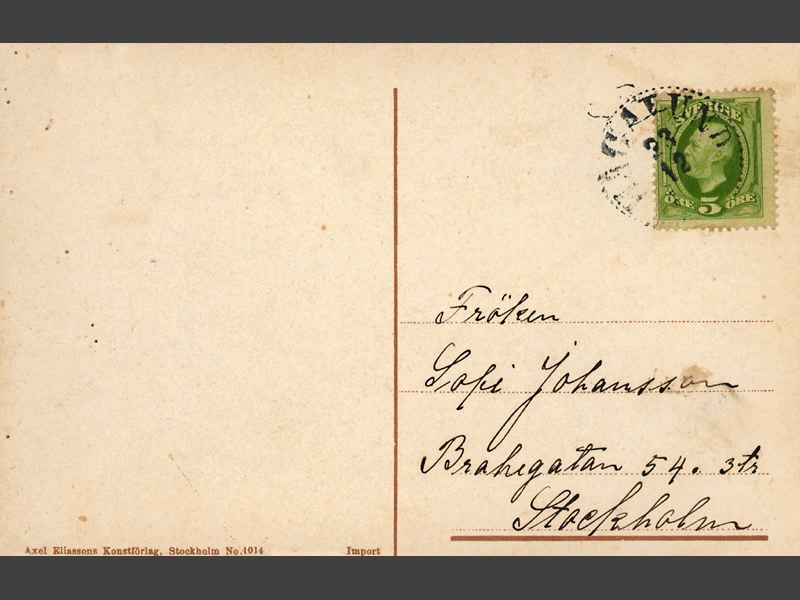 SVERIGE
23
12
ÖRE 5 ÖRE
Fröken
Sofi Johansson
Brahegatan 54. 3tr
Stockholm
Axel Eliassons Konstförlag, Stockholm No.1014
Import